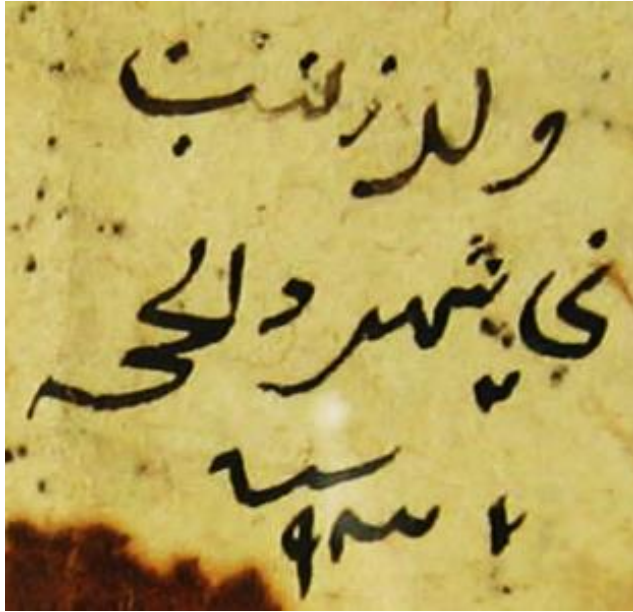 ولد زينب
في شهر دالحجه
سنه